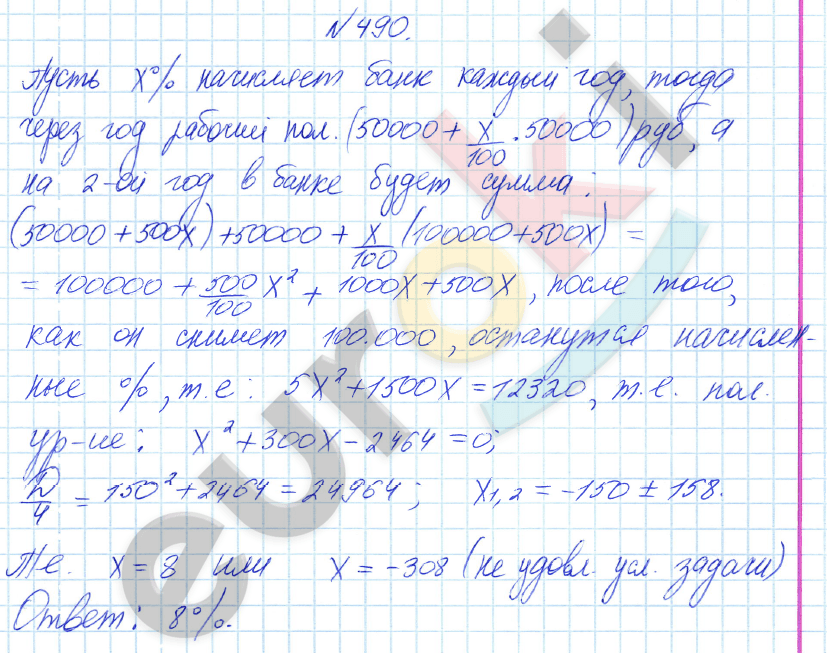 №490.
Пусть x% начисляет банк каждый год, тогда
через год рабочий пол. (50000 + x/100 · 50000) руб, а
на 2-ой год в банке будет сумма:
(50000 + 500x) + 50000 + x/100 (100000 + 500x) =
= 100000 + 500/100 x² + 1000x + 500x, после того,
как он снимет 100.000, останутся начислен-
ные %, т.е: 5x² + 1500x = 12320, т.е. пол.
ур-ие: x² + 300x - 2464 = 0;
D/4 = 150² + 2464 = 24964; x1,2 = -150 ± 158.
Т.е. x = 8 или x = -308 (не удовл. усл. задачи)
Ответ: 8%.
euroki